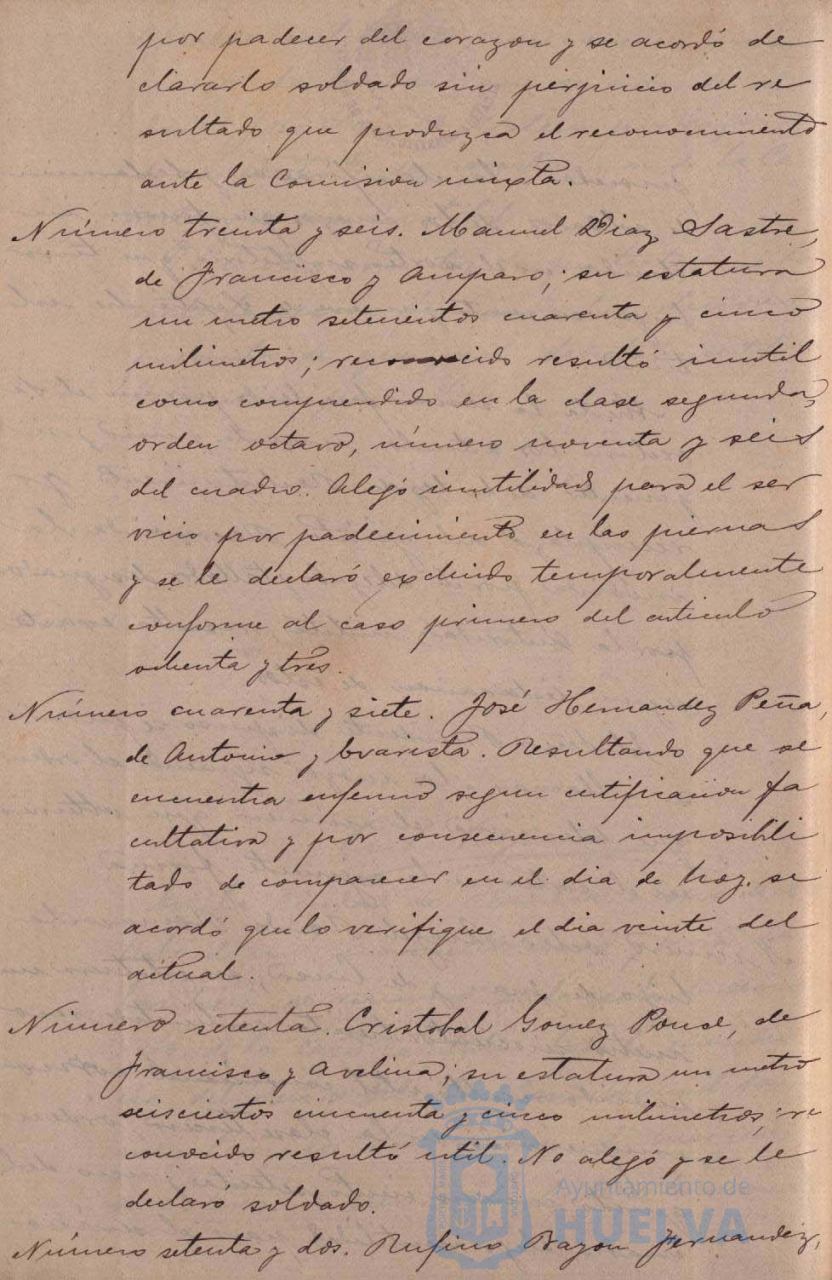 por padecer del corazon y se acordó de
clararlo soldado sin perjuicio del re
sultado que produzca el reconocimiento
ante la Comision mixta.
Número treinta y seis. Manuel Diaz Sastre,
de Francisco y Amparo; su estatura
un metro setecientos cuarenta y cinco
milimetros; reconocido resultó inutil
como comprendido en la clase segunda,
orden octavo, número noventa y seis
del cuadro. Alegó inutilidad para el ser
vicio por padecimiento en las piernas
y se le declaró excluido temporalmente
conforme al caso primero del articulo
ochenta y tres.
Número cuarenta y siete. José Hernandez Peña,
de Antonio y Evarista. Resultando que se
encuentra enfermo segun certificacion fa
cultativa y por consecuencia imposibili
tado de comparecer en el dia de hoy, se
acordó que lo verifique el dia veinte del
actual.
Número setenta. Cristobal Gomez Ponce, de
Francisco y Avelina; su estatura un metro
seiscientos cincuenta y cinco milimetros; re
conocido resultó util. No alegó y se le
declaró soldado.
Ayuntamiento de
HUELVA
Número setenta y dos. Rufino Bayon Fernandez,